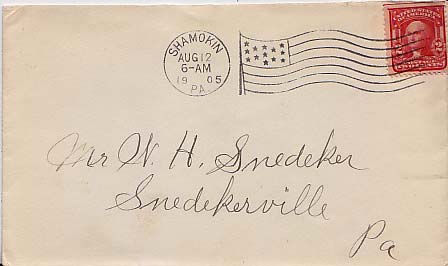 SHAMOKIN
AUG 12
6-AM
1905
PA.
UNITED STATES
OF AMERICA
POSTAGE
2
Mr W. H. Snedeker
Snedekerville
Pa